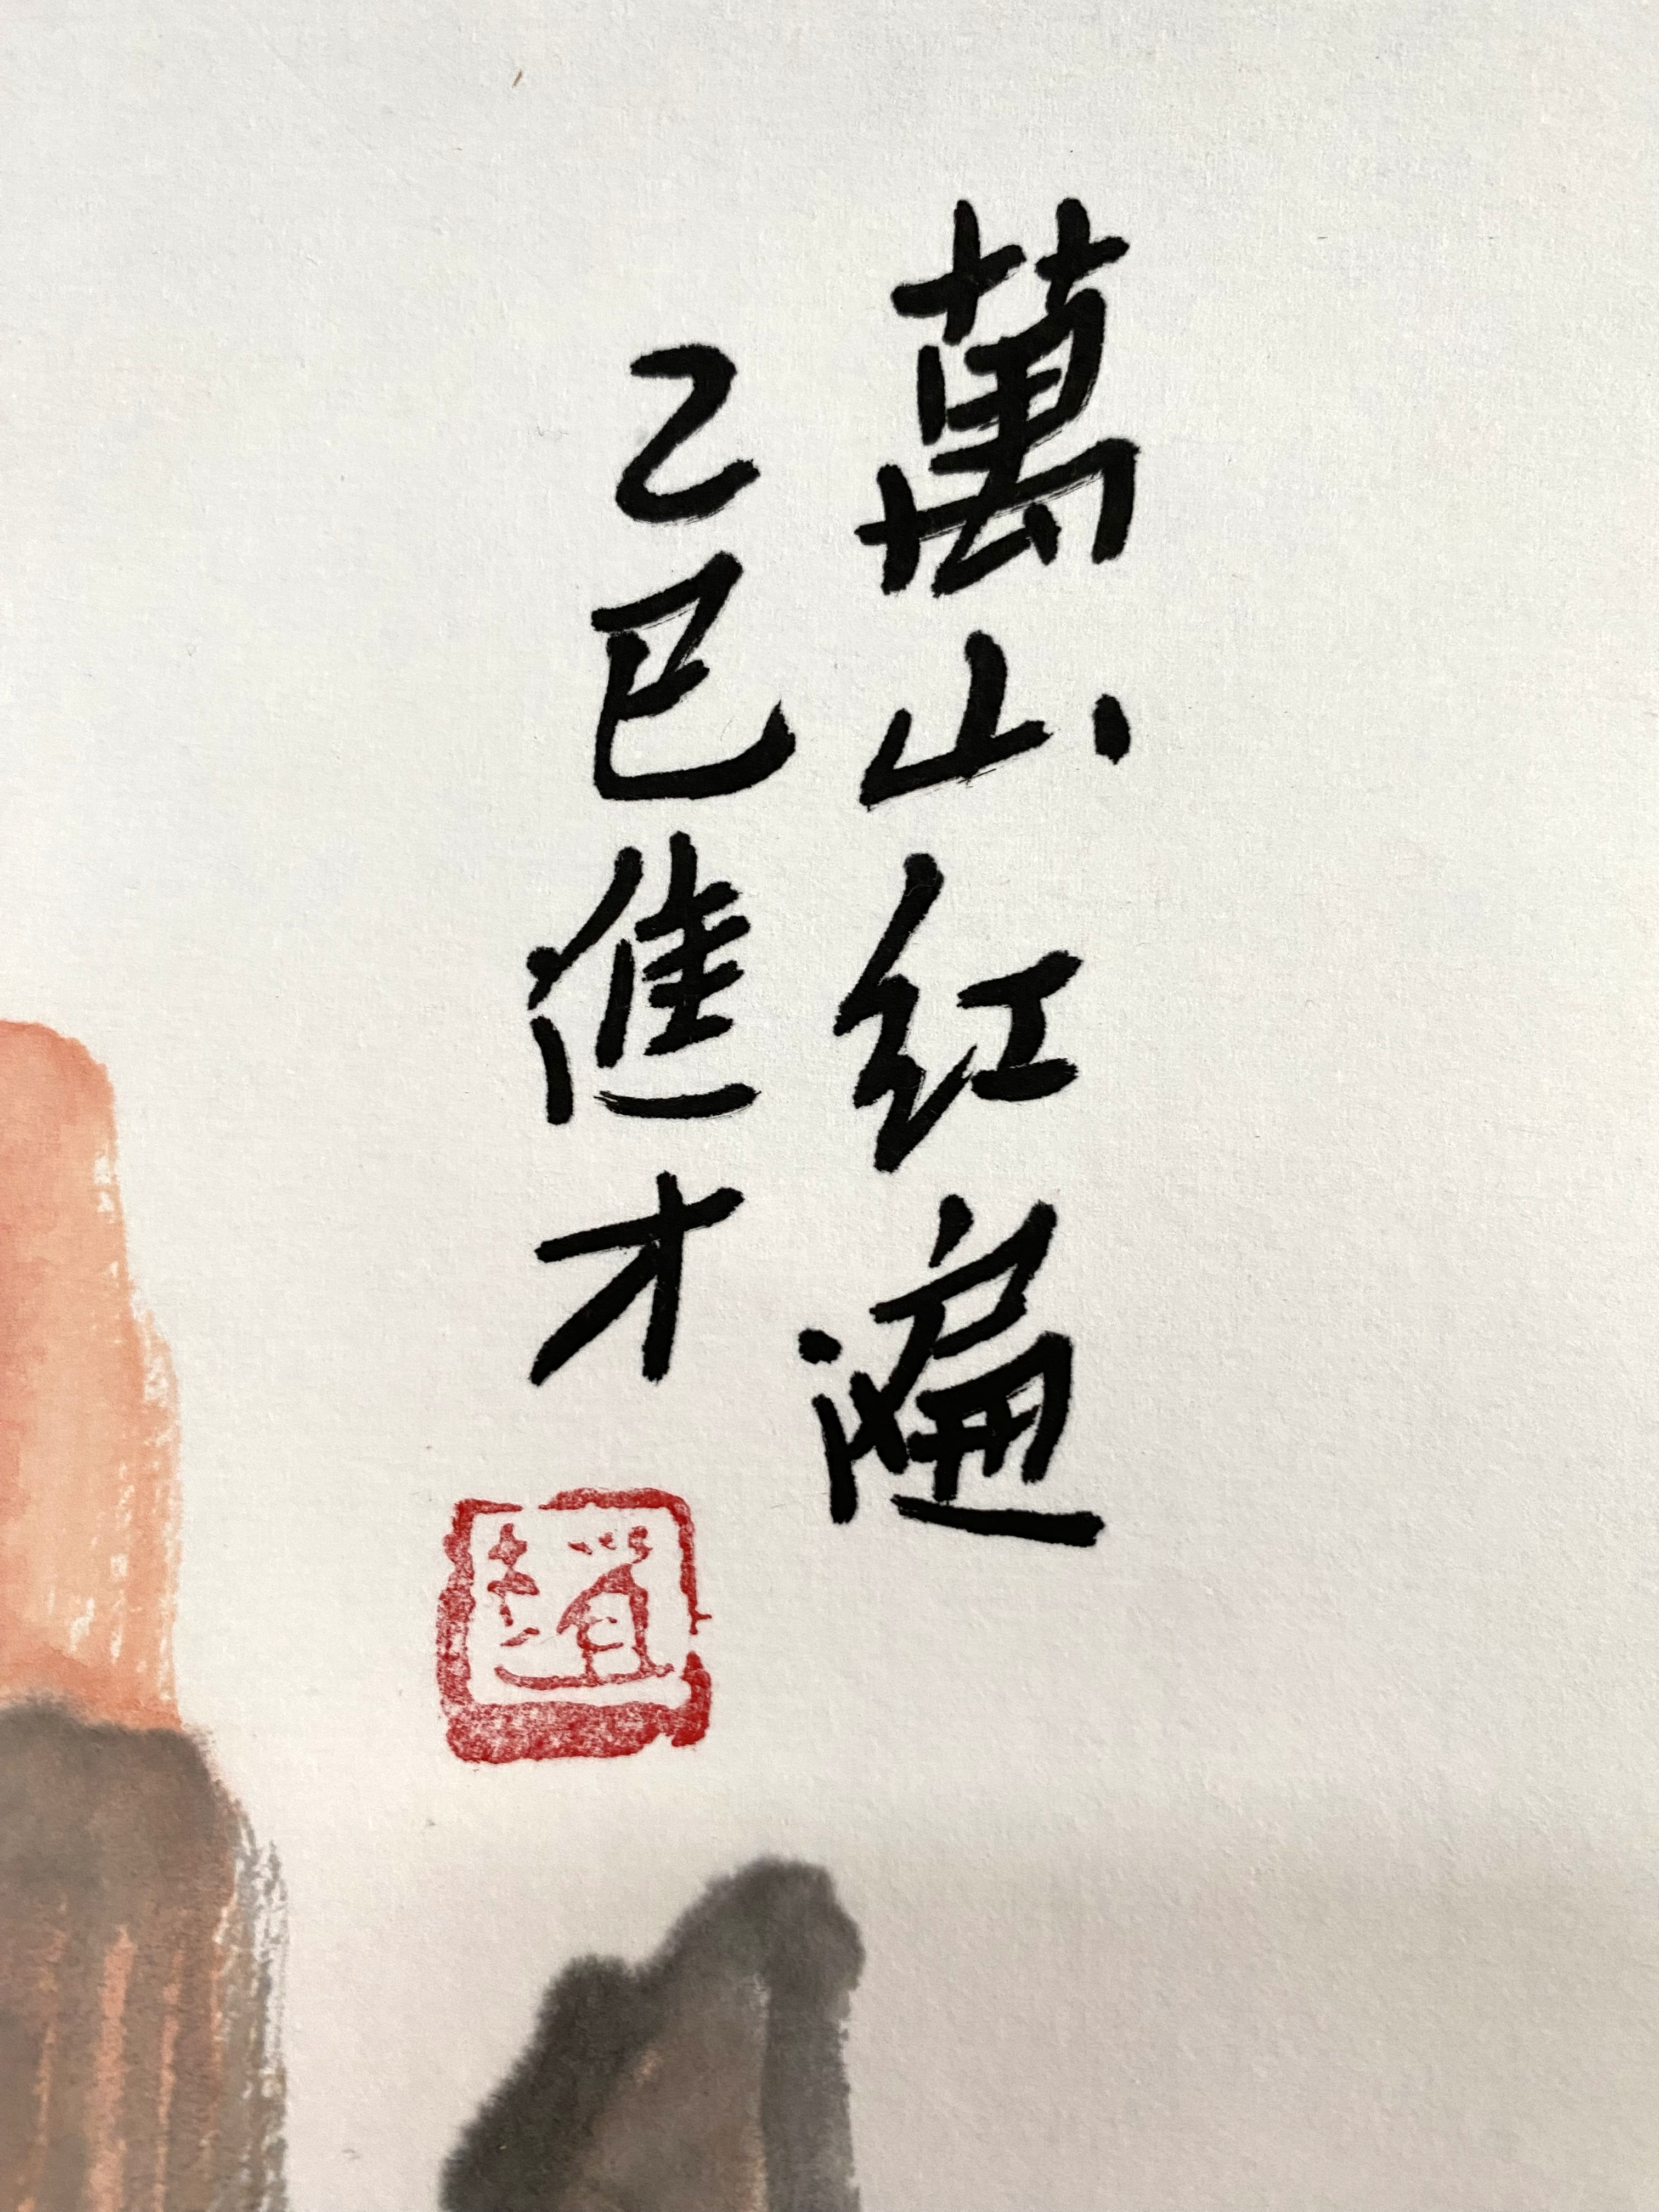 萬山红遍
乙巳進才
趙